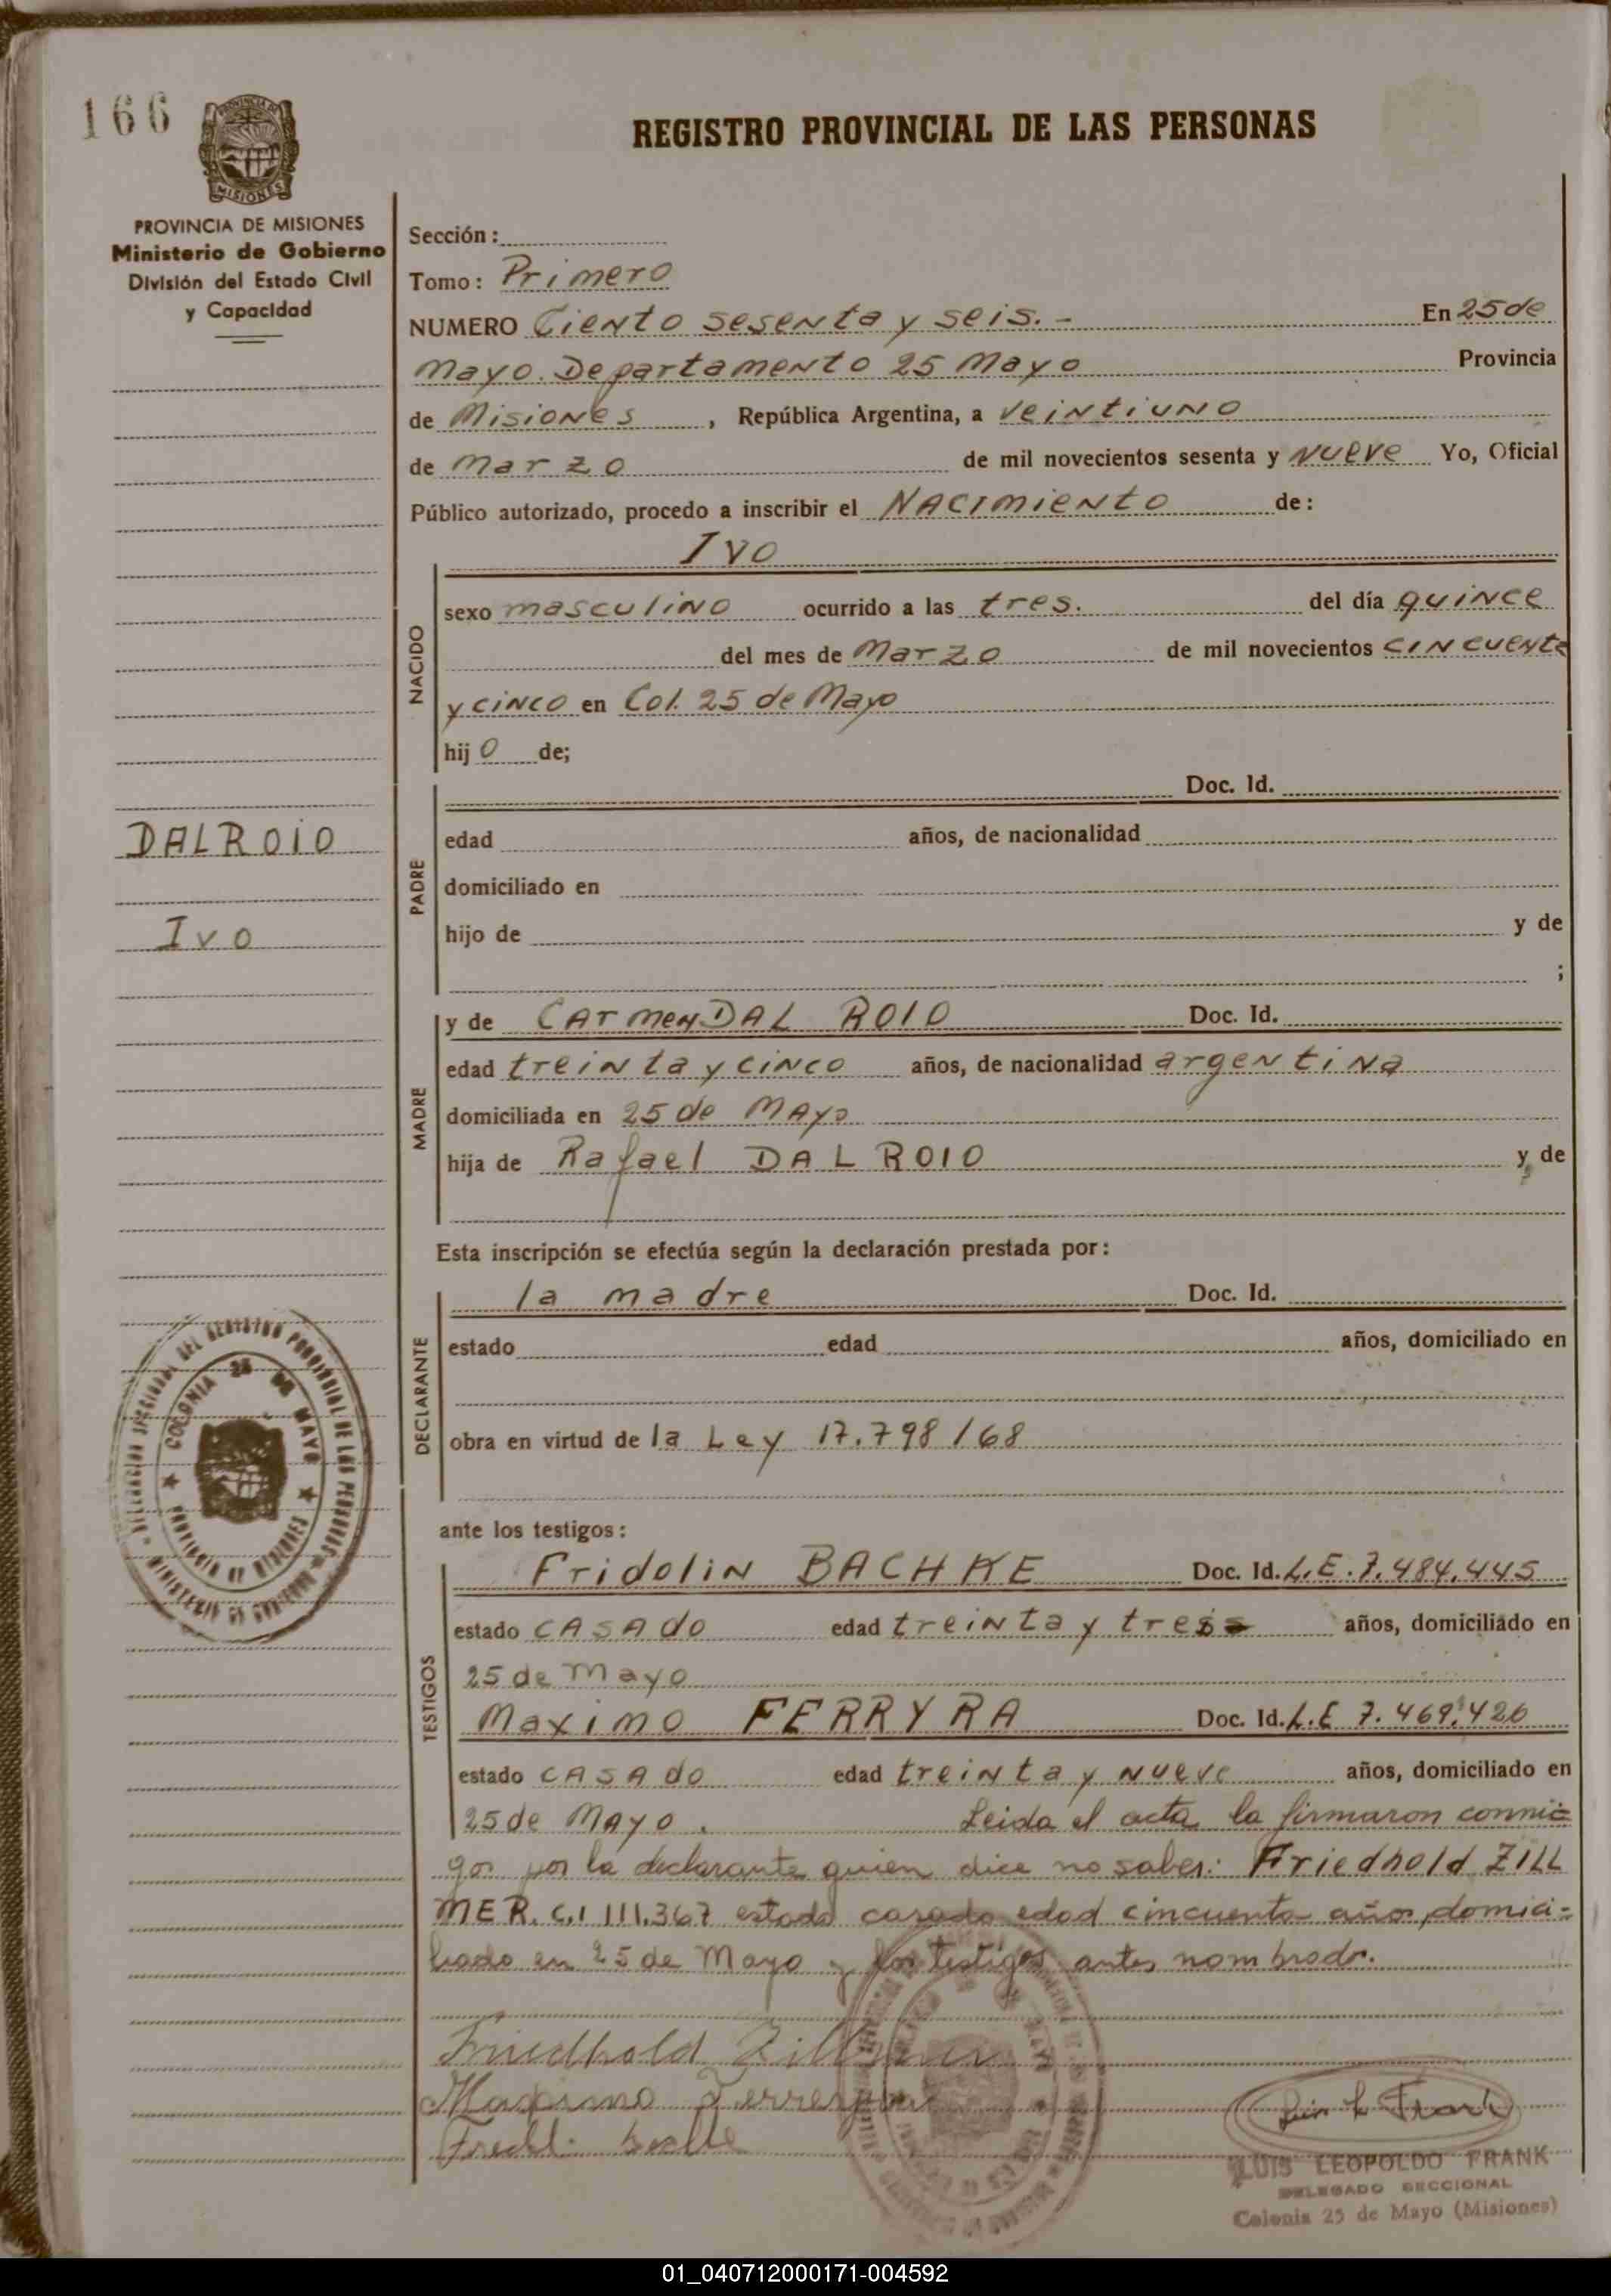 166
PROVINCIA DE
MISIONES
REGISTRO PROVINCIAL DE LAS PERSONAS
PROVINCIA DE MISIONES
Ministerio de Gobierno
División del Estado Civil
y Capacidad
Sección:
Tomo: Primero
NUMERO Ciento sesenta y seis.- En 25 de
Mayo. Departamento 25 Mayo Provincia
de Misiones, República Argentina, a veintiuno
de Marzo de mil novecientos sesenta y nueve Yo, Oficial
Público autorizado, procedo a inscribir el NACIMIENTO de:
Ivo
NACIDO
sexo masculino ocurrido a las tres. del día quince
del mes de Marzo de mil novecientos cincuenta
y cinco en Col. 25 de Mayo
hijo de;
DALROIO
Ivo
PADRE
Doc. Id.
edad años, de nacionalidad
domiciliado en
hijo de y de
;
MADRE
y de Carmen DAL ROIO Doc. Id.
edad treinta y cinco años, de nacionalidad argentina
domiciliada en 25 de Mayo
hija de Rafael DAL ROIO y de
Esta inscripción se efectúa según la declaración prestada por:
DECLARANTE
la madre Doc. Id.
estado edad años, domiciliado en
obra en virtud de la Ley 17.798/68
COLONIA 25 DE MAYO
PROVINCIA DE MISIONES
ante los testigos:
TESTIGOS
Fridolin BACHKE Doc. Id. L.E. 7.484.445
estado CASADO edad treinta y tres años, domiciliado en
25 de Mayo
Maximo FERRYRA Doc. Id. L.E 7.469.426
estado CASADO edad treinta y nueve años, domiciliado en
25 de Mayo. Leida el acta la firmaron conmi=
go por la declarante quien dice no saber: Friedhold ZILL
MER. C.I 111.367 estado casado edad cincuenta años, domici=
liado en 25 de Mayo y los testigos antes nombrado.
Friedhold Zillmer
Maximo Ferreyra
Luis L Frank
LUIS LEOPOLDO FRANK
DELEGADO SECCIONAL
Colonia 25 de Mayo (Misiones)
01_040712000171-004592